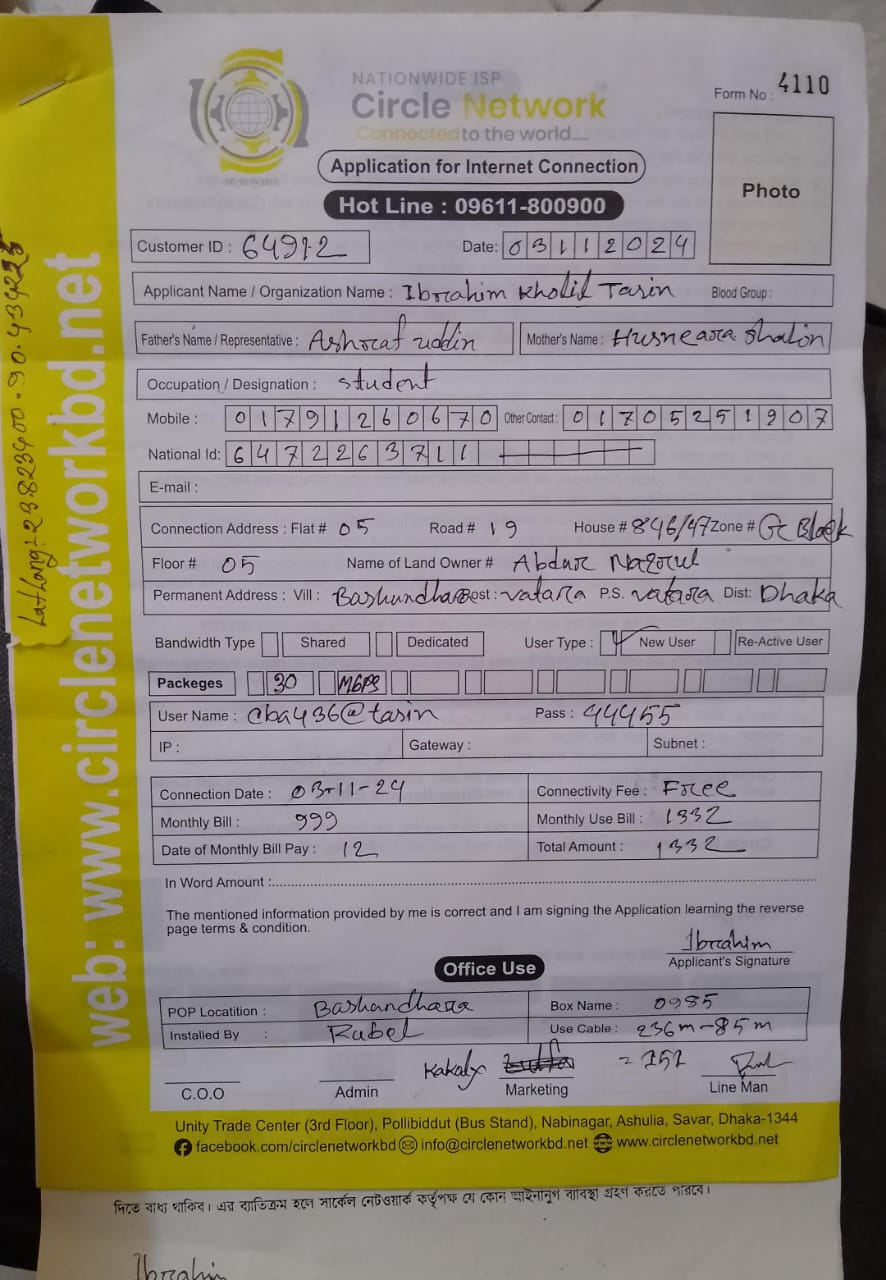 NATIONWIDE ISP
Circle Network
Connected to the world....
Form No : 4110
Application for Internet Connection
Photo
Hot Line : 09611-800900
Customer ID : 64912 Date: 03112024
Applicant Name / Organization Name : Ibrahim Kholil Tasin Blood Group :
Father's Name / Representative : Ashraf uddin Mother's Name : Husneara Shalin
Occupation / Designation : student
Mobile : 01791260670 Other Contact : 01705251907
National Id: 6472263711
E-mail :
Connection Address : Flat # 05 Road # 19 House # 846/47 Zone # G Block
Floor # 05 Name of Land Owner # Abdur Nazrul
Permanent Address : Vill : Bashundhara Post : vatara P.S. vatara Dist: Dhaka
Bandwidth Type Shared Dedicated User Type : New User Re-Active User
Packeges 30 MBPS
User Name : cba436@tasin Pass : 44455
IP : Gateway : Subnet :
Connection Date : 03-11-24 Connectivity Fee : Free
Monthly Bill : 999 Monthly Use Bill : 1332
Date of Monthly Bill Pay : 12 Total Amount : 1332
In Word Amount :
The mentioned information provided by me is correct and I am signing the Application learning the reverse
page terms & condition.
Ibrahim
Applicant's Signature
Office Use
POP Locatition : Bashandhara Box Name : 0985
Installed By : Rubel Use Cable : 236m-85m
Kakaly = 151
C.O.O Admin Marketing Line Man
Unity Trade Center (3rd Floor), Pollibiddut (Bus Stand), Nabinagar, Ashulia, Savar, Dhaka-1344
facebook.com/circlenetworkbd info@circlenetworkbd.net www.circlenetworkbd.net
web: www.circlenetworkbd.net
দিতে বাধ্য থাকিব। এর ব্যতিক্রম হলে সার্কেল নেটওয়ার্ক কর্তৃপক্ষ যে কোন আইনানুগ ব্যাবস্থা গ্রহণ করতে পারবে।
Ibrahim